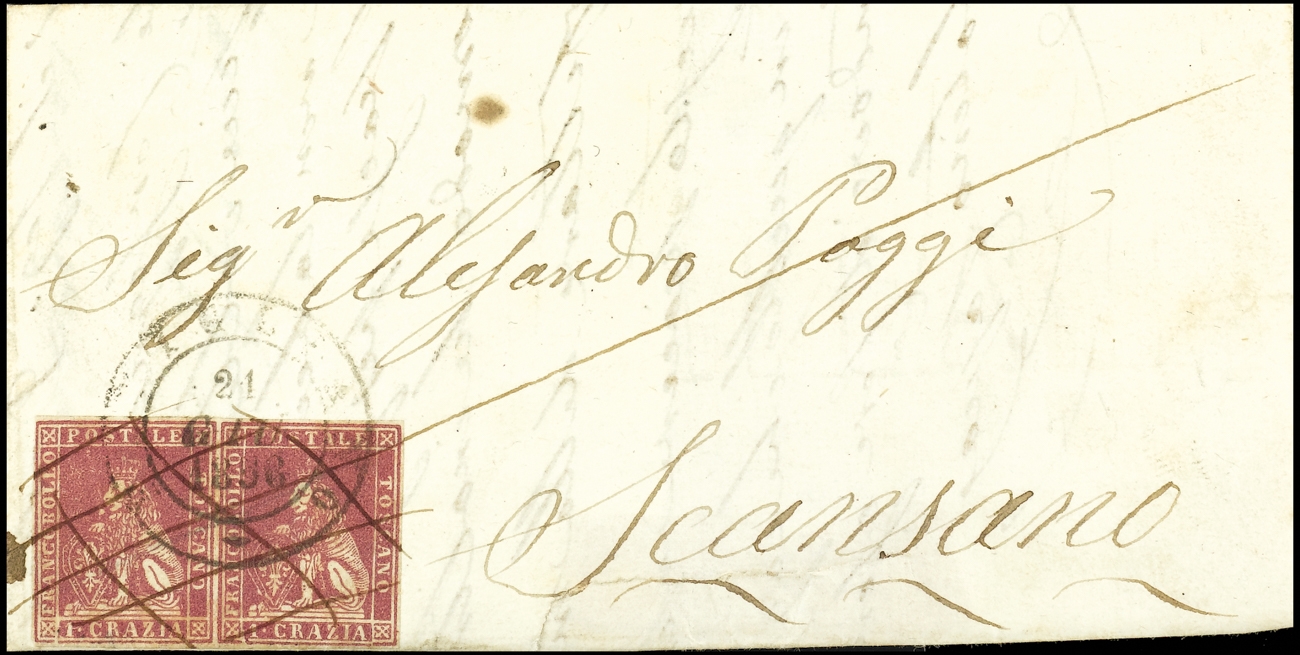 Sigr Alesandro Poggi
Scansano
21
1856
FRANCOBOLLO POSTALE TOSCANO
1. CRAZIA
FRANCOBOLLO POSTALE TOSCANO
1. CRAZIA